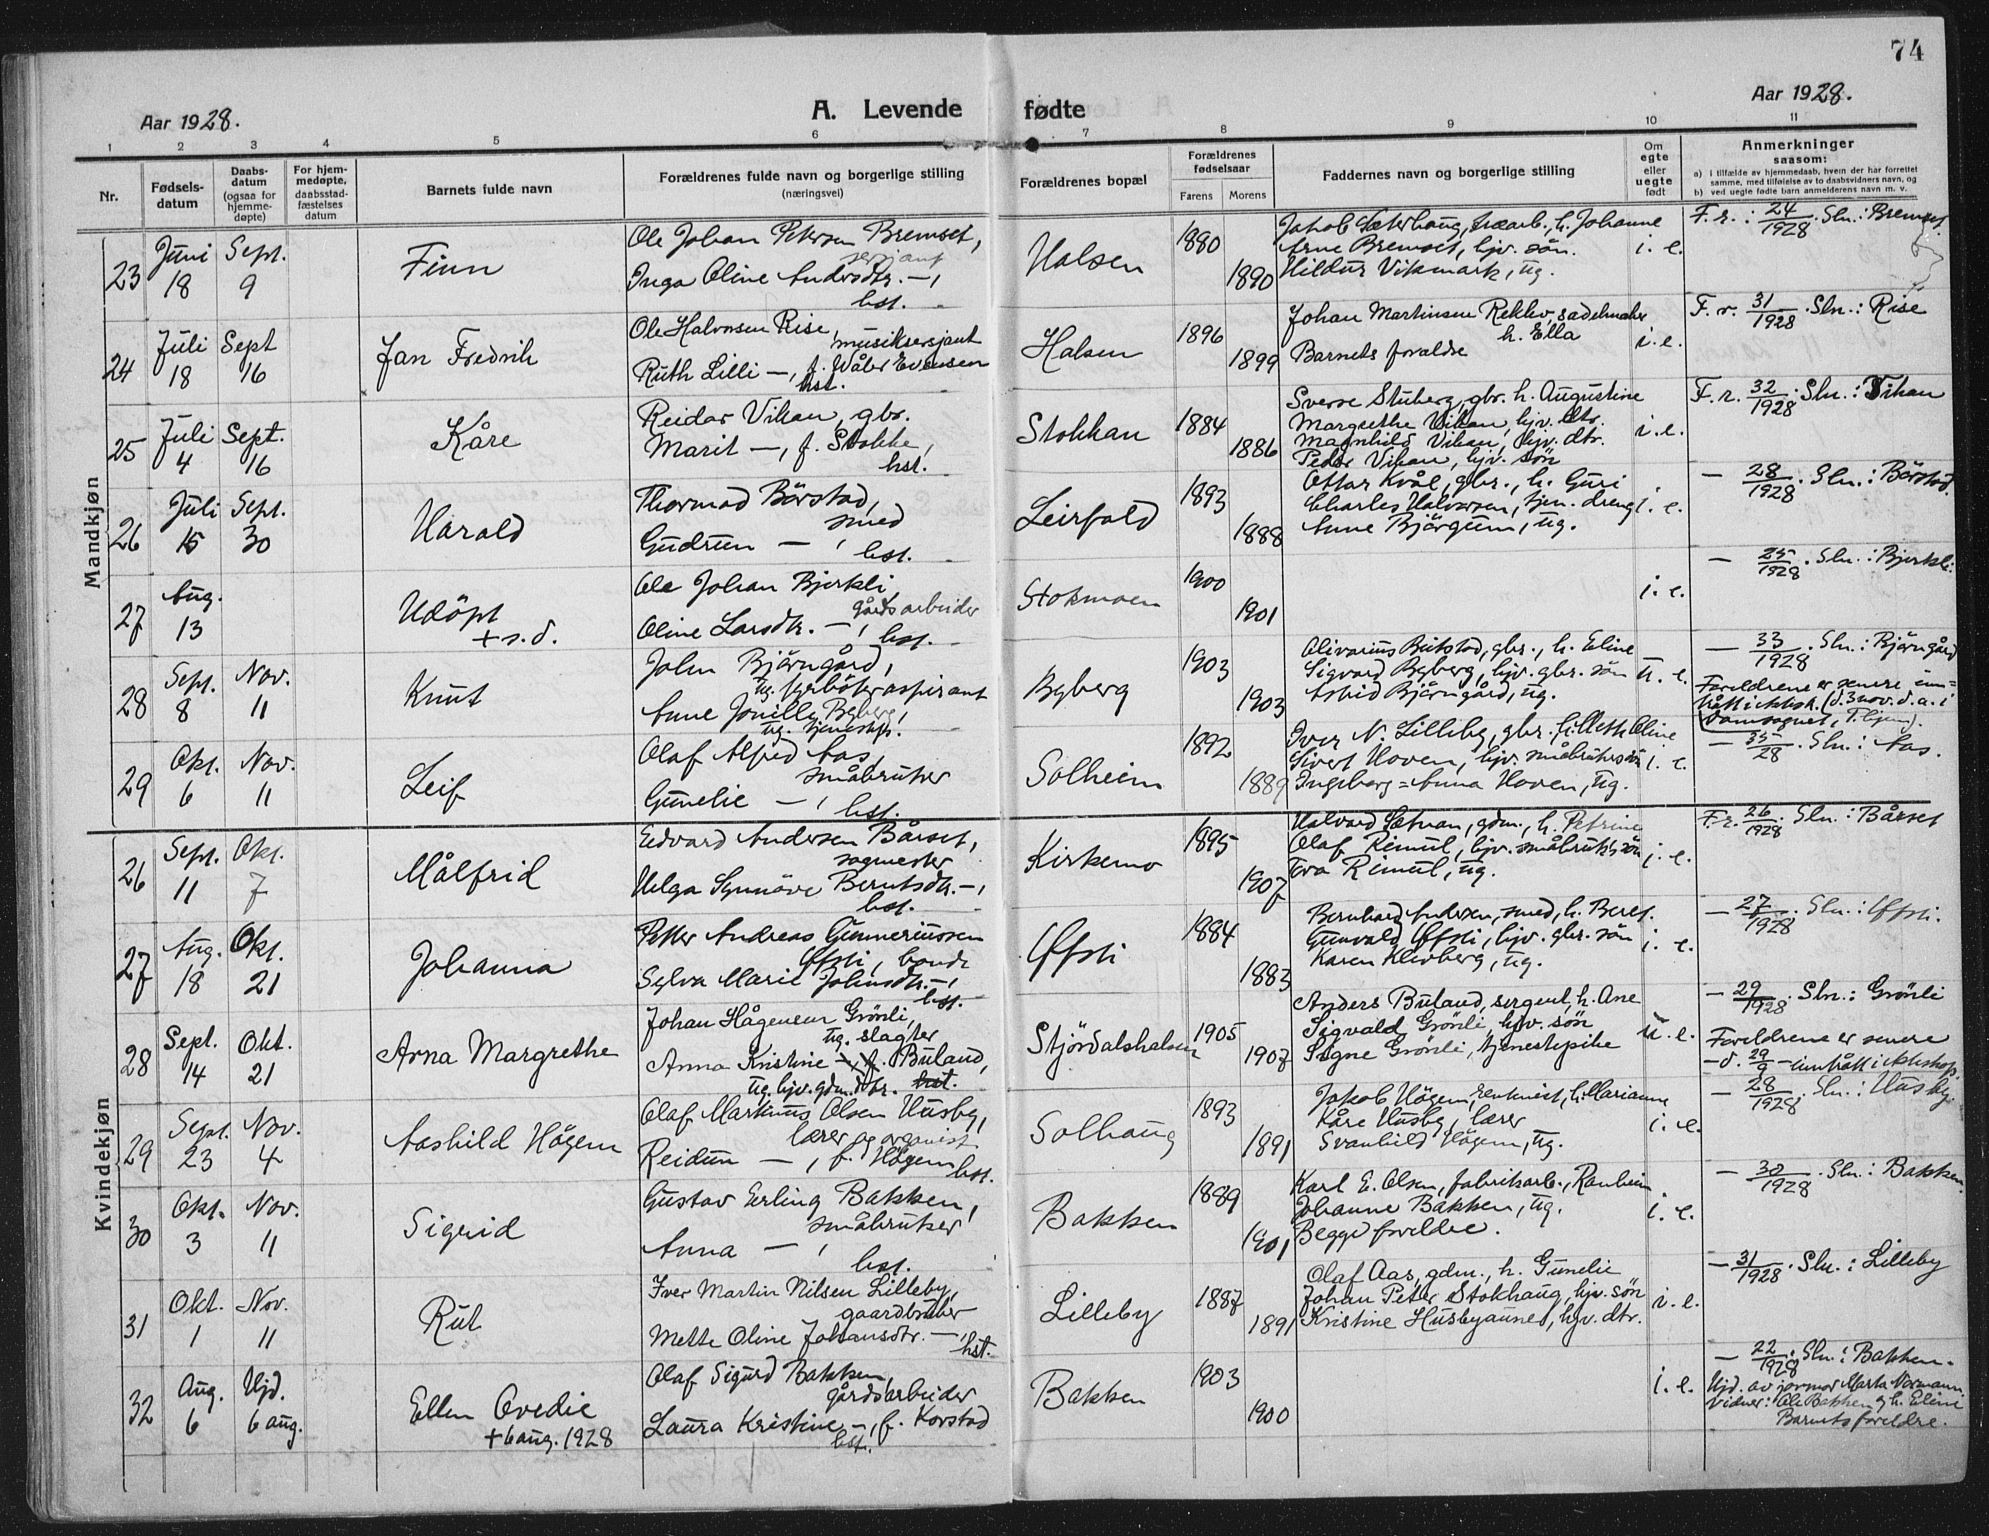 74
Aar 1928.
A. Levende fødte
Aar 1928.
1 2 3 4 5 6 7 8 9 10 11
Nr.
Fødsels-
datum
Daabs-
datum
(ogsaa for
hjemme-
døpte)
For hjem-
medøpte,
daabsstad-
fæstelses
datum
Barnets fulde navn
Forældrenes fulde navn og borgerlige stilling
(næringsvei)
Forældrenes bopæl
Forældrenes
fødselsaar
Farens Morens
Faddernes navn og borgerlige stilling
Om
egte
eller
uegte
født
Anmerkninger
saasom:
a) i tilfælde av hjemmedaab, hvem der har forrettet
samme, med tilføielse av to daabsvidners navn, og
b) ved uegte fødte barn anmelderens navn m. v.
Mandkjøn
23
Juni
18
Sept.
9
Finn
Ole Johan Petersen Bremset,
sersjant
Inga Oline Andersdtr. —,
hst.
Halsen
1890
Jakob Sæterhaug, træarb., h. Johanne
Arne Bremset, hjv. søn.
Hildur Vikmark, ug.
i. e.
F. r.: 24/1928. Sln.: Bremset
24
Juli
18
Sept
16
Jan Fredrik
Ole Halvorsen Rise,
musiksersjant
Ruth Lilli —, f. Wåler Evensen
hst.
Halsen
1896
1899
Johan Martinsen Rekkev. sadelmaker
h. Ella
Barnets forældre
i. e.
F. r. 31/1928. Sln.: Rise
25
Juli
4
Sept.
16
Kåre
Reidar Vikan, gbr.
Marit —, f. Stokke,
hst.
Stokkan
1884
1886
Sverre Stuberg, gbr. h. Augustine
Margrethe Vikan, hjv. dtr.
Magnhild Vikan, hjv. dtr.
Peder Vikan, hjv. søn
i. e.
F. r. 32/1928. Sln.: Vikan
26
Juli
15
Sept.
30
Harald
Thormod Börstad,
smed
Gudrun —,
hst.
Leirfald
1893
1888
Ottar Kvål, gbr., h. Guri
Charles Halvorsen, tjen. dreng
Anne Bjørgum, ug.
i. e.
— 28/1928. Sln.: Börstad.
27
Aug.
13
Udöpt
+ s. d.
Ole Johan Bjerkli
gårdsarbeider
Oline Larsdtr. —,
hst.
Stokmoen
1900
1901
i. e.
— 25/1928. Sln.: Bjerkli.
28
Sept.
8
Nov.
11
Knut
John Björngård,
ug. fyrbøteraspirant
Anne Jonilla Byberg,
ug. tjenestep.
Byberg
1903
1903
Olivarius Butstad, gbr., h. Eline
Sigvard Byberg, hjv. gbr. søn
Astrid Björngård, ug.
u. e.
— 33/1928. Sln.: Björngård
Foreldrene er senere inn=
trått i ektesk. (d. 3 nov. d. a. i
29
Okt.
6
Nov.
11
Leif
Olaf Alfred Aas,
småbruker
Gunelie —,
hst.
Solheim
1892
1889
Iver N. Lilleby, gbr. h. Mette Oline
Sivert Hoven, hjv. småbrukers søn
Ingeborg = Anna Hoven, ug.
i. e.
— 35/28. Sln.: Aas.
Kvindekjøn
26
Sept.
11
Okt.
7
Målfrid
Edvard Andersen Bårset,
sagmester
Helga Synnöve Berntsdtr. —,
hst.
Kirkemo
1895
1907
Halvard Sætnan, gdm., h. Petrine
Olaf Rimul, hjv. småbruk.s søn
Eva Rimul, ug.
i. e.
F. r. 26/1928. Sln.: Bårset
27
Aug.
18
Okt.
21
Johanna
Petter Andreas Gunneriussen
Øfsti, bonde
Sylva Marie Johnsdtr. —,
hst.
Øfsti
1884
1883
Bernhard Andersen, smed, h. Beret.
Gunvald Øfsti, hjv. gbr. søn
Karen Klevberg, ug.
i. e.
— 27/1928. Sln.: Øfsti.
28
Sept.
14
Okt.
21
Arna Margrethe
Johan Hågensen Grönli,
ug. slagter
Anna Kristine —, f. Buland,
ug. hjv. gdm. dtr. hst.
Stjördalshalsen
1905
1907
Anders Buland, sergent, h. Ane
Sigvald Grönli, hjv. søn
Signe Grönli, tjenestepike
u. e.
— 29/1928. Sln.: Grönli
Foreldrene er senere
— d. 29/9 — inntrått i ekteskap.
29
Sept.
23
Nov.
4
Aashild Högem
Olaf Markus Olsen Husby,
lærer og organist
Reidun —, f. Högem
hst.
Solhaug
1893
1891
Jakob Högem, rentenist, h. Marianne
Kåre Husby, lærer
Svanhild Högem, ug.
i. e.
— 28/1928. Sln.: Husby.
30
Okt.
3
Nov.
11
Sigrid
Gustav Erling Bakken,
småbruker
Anna —,
hst.
Bakken
1889
1901
Karl E. Olsen, fabrikarb., Ranheim
Johanne Bakken, ug.
Begge foreldre.
i. e.
— 30/1928. Sln.: Bakken.
31
Okt.
1
Nov.
11
Rut
Iver Martin Nilsen Lilleby,
gaardbruker
Mette Oline Johansdtr. —,
hst.
Lilleby
1887
1891
Olaf Aas, gdm., h. Gunelie
Johan Peter Stokhaug, hjv. søn
Kristine Husbyaunet, hjv. dtr.
i. e.
— 31/1928. Sln.: Lilleby
32
Aug.
6
Hjd.
6 aug.
Ellen Ovedie
+ 6 aug. 1928
Olaf Sigurd Bakken,
gårdsarbeider
Laura Kristine —, f. Korstad
hst.
Bakken
1903
1900
i. e.
— 22/1928. Sln.: Bakken.
Hjd. av jormor Marta Normann.
Vidner: Ole Bakken og h. Eline
Barnets foreldre.